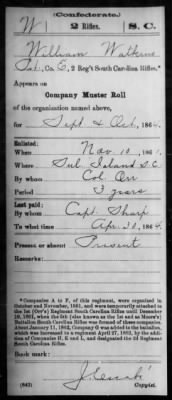 (Confederate.)
W 2 Rifles. S. C.
William Watkins
Pvt., Co. E, 2 Reg't South Carolina Rifles.*
Appears on
Company Muster Roll
of the organization named above,
for Sept & Oct, 1864.
Enlisted:
When Nov 10, 1861.
Where Sul Island S.C.
By whom Col Orr
Period 3 years
Last paid:
By whom Capt Sharp
To what time Apr 30, 1864.
Present or absent Present
Remarks:
*Companies A to F, of this regiment, were organized in
October and November, 1861, and were temporarily attached to
the 1st (Orr's) Regiment South Carolina Rifles until December
19, 1861, when the 5th (also known as the 1st and as Moore's)
Battalion South Carolina Rifles was formed of these companies.
About January 11, 1862, Company G was added to the battalion,
which was increased to a regiment April 27, 1862, by the addi-
tion of Companies H, K and L, and designated the 2d Regiment
South Carolina Rifles.
Book mark:
(642)
Copyist.